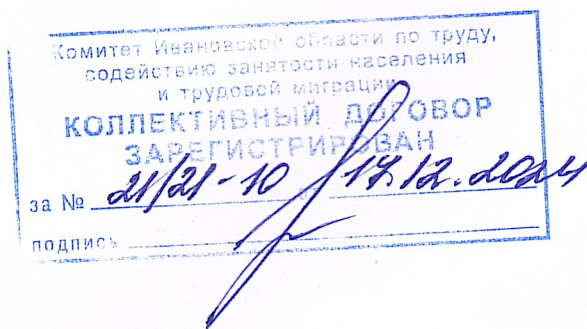 Комитет Ивановской области по труду,
содействию занятости населения
и трудовой миграции
КОЛЛЕКТИВНЫЙ ДОГОВОР
ЗАРЕГИСТРИРОВАН
за № 21/21-10 17.12.2024
подпись